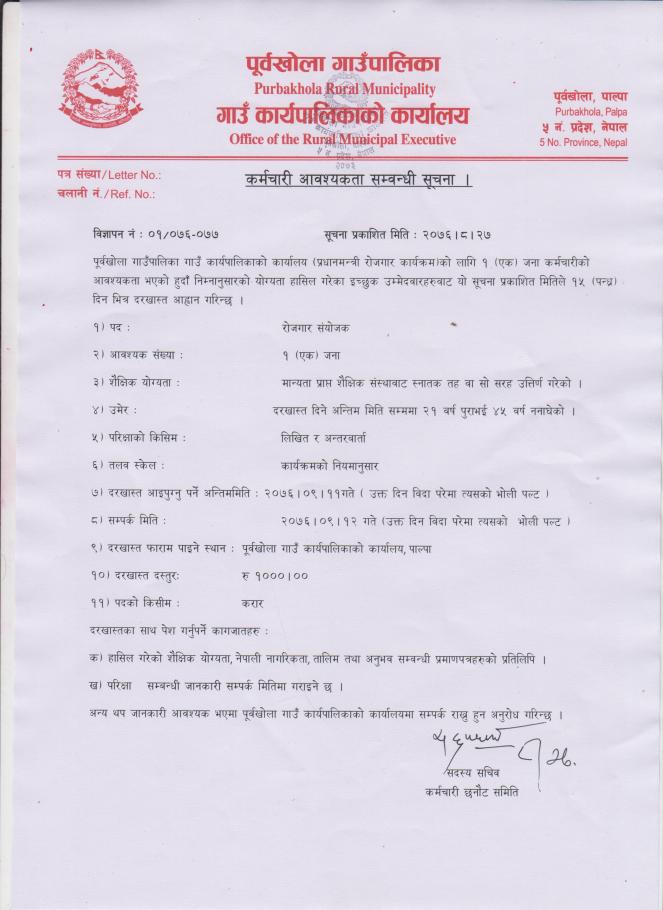 पूर्वखोला गाउँपालिका
Purbakhola Rural Municipality
गाउँ कार्यपालिकाको कार्यालय
Office of the Rural Municipal Executive
पूर्वखोला, पाल्पा
Purbakhola, Palpa
५ नं. प्रदेश, नेपाल
5 No. Province, Nepal
पत्र संख्या/Letter No.:
चलानी नं./Ref. No.:
कर्मचारी आवश्यकता सम्बन्धी सूचना ।
विज्ञापन नं : ०१/०७६-०७७ सूचना प्रकाशित मिति : २०७६।८।२७
पूर्वखोला गाउँपालिका गाउँ कार्यपालिकाको कार्यालय (प्रधानमन्त्री रोजगार कार्यक्रम)को लागि १ (एक) जना कर्मचारीको
आवश्यकता भएको हुदाँ निम्नानुसारको योग्यता हासिल गरेका इच्छुक उम्मेदवारहरुबाट यो सूचना प्रकाशित मितिले १५ (पन्ध्र)
दिन भित्र दरखास्त आह्वान गरिन्छ ।
१) पद : रोजगार संयोजक
२) आवश्यक संख्या : १ (एक) जना
३) शैक्षिक योग्यता : मान्यता प्राप्त शैक्षिक संस्थावाट स्नातक तह वा सो सरह उत्तिर्ण गरेको ।
४) उमेर : दरखास्त दिने अन्तिम मिति सम्ममा २१ वर्ष पुराभई ४५ वर्ष ननाघेको ।
५) परिक्षाको किसिम : लिखित र अन्तरवार्ता
६) तलव स्केल : कार्यक्रमको नियमानुसार
७) दरखास्त आइपुग्नु पर्ने अन्तिममिति : २०७६।०९।११गते ( उक्त दिन विदा परेमा त्यसको भोली पल्ट )
८) सम्पर्क मिति : २०७६।०९।१२ गते (उक्त दिन विदा परेमा त्यसको भोली पल्ट )
९) दरखास्त फाराम पाइने स्थान : पूर्वखोला गाउँ कार्यपालिकाको कार्यालय, पाल्पा
१०) दरखास्त दस्तुरः रु १०००।००
११) पदको किसीम : करार
दरखास्तका साथ पेश गर्नुपर्ने कागजातहरु :
क) हासिल गरेको शैक्षिक योग्यता, नेपाली नागरिकता, तालिम तथा अनुभव सम्बन्धी प्रमाणपत्रहरुको प्रतिलिपि ।
ख) परिक्षा सम्बन्धी जानकारी सम्पर्क मितिमा गराइने छ ।
अन्य थप जानकारी आवश्यक भएमा पूर्वखोला गाउँ कार्यपालिकाको कार्यालयमा सम्पर्क राख्नु हुन अनुरोध गरिन्छ ।
सदस्य सचिव
कर्मचारी छनौट समिति